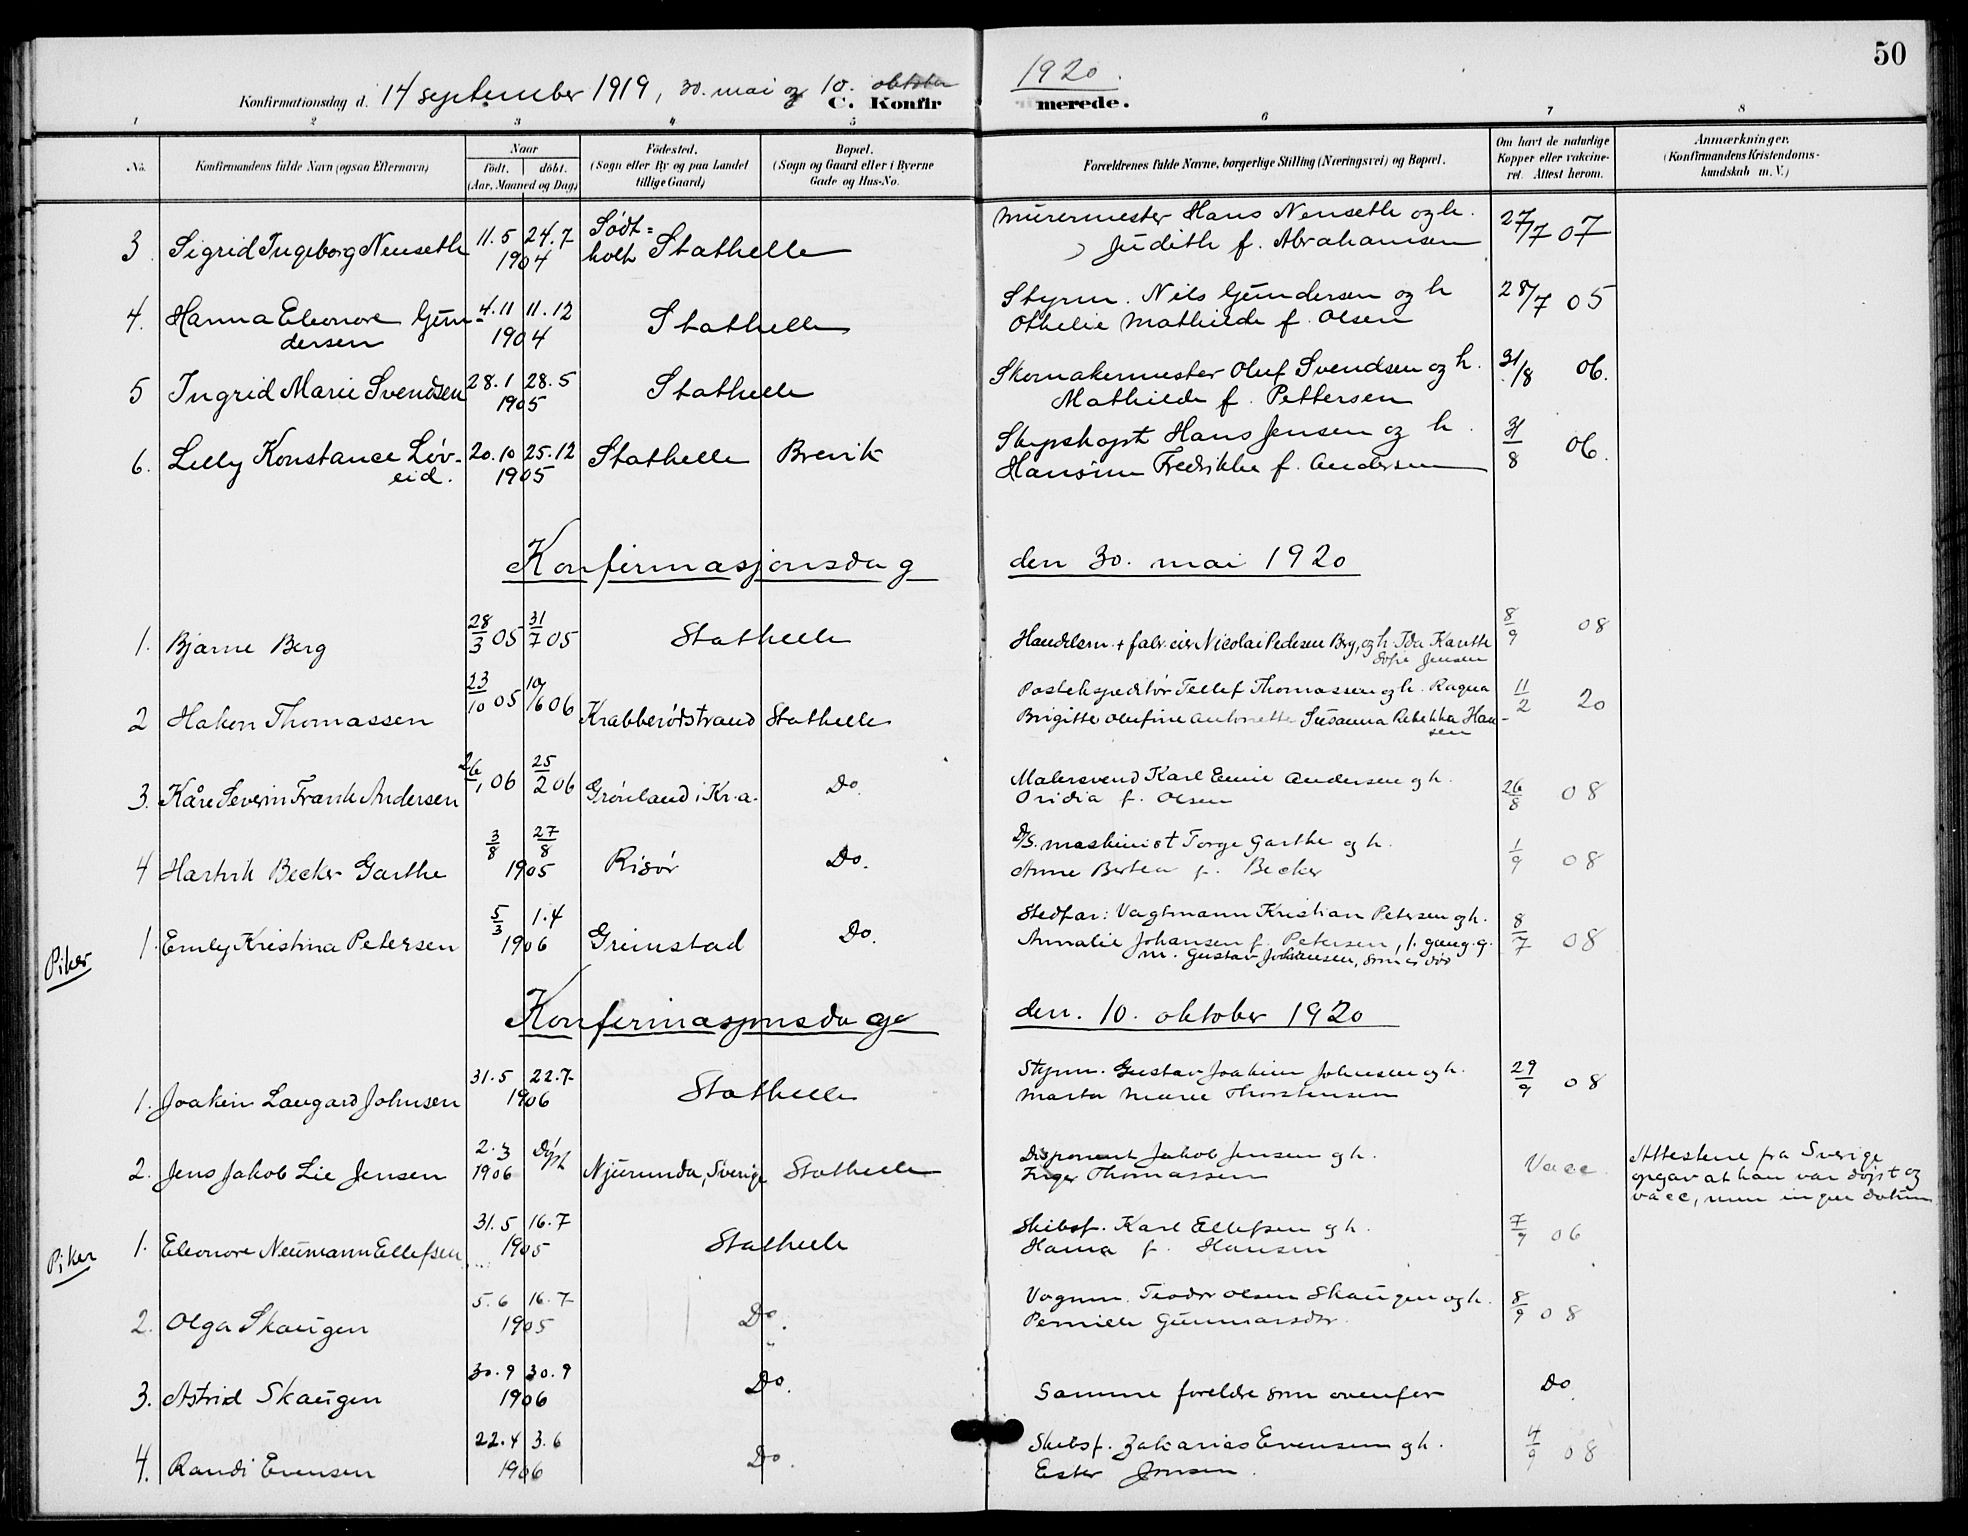 50
Konfirmationsdag d. 14 september 1919, 30. mai og 10. oktober 1920.
C. Konfirmerede.
1 2 3 4 5 6 7 8
No. Konfirmandens fulde Navn (ogsaa Efternavn)
Naar
født. døbt.
(Aar, Maaned og Dag)
Fødested.
(Sogn eller By og paa Landet
tillige Gaard)
Bopæl.
(Sogn og Gaard eller i Byerne
Gade og Hus-No.
Forældrenes fulde Navne, borgerlige Stilling (Næringsvei) og Bopæl.
Om havt de naturlige
Kopper eller vakcine-
ret. Attest herom.
Anmærkninger.
(Konfirmandens Kristendoms-
kundskab m. V.)
3. Sigrid Ingeborg Nenseth 11.5 24.7 1904 Stathelle
Murermester Hans Nenseth og h.
Judith f. Abrahamsen 27/7 07
4. Hanna Eleonore Gun 4.11 11.12
dersen 1904 Stathelle
Styrm. Nils Gundersen og h
Othelie Mathilde f. Olsen 28/7 05
5 Ingrid Marie Svendsen 28.1 28.5 1905 Stathelle
Skomakermester Oluf Svendsen og h.
Mathilde f. Pettersen 31/8 06.
6. Lilly Konstance Løv- 20.10 25.12
eid. 1905 Stathelle Brevik
Skipskapt Hans Jensen og h.
Hansine Fredrikke f. Andersen 31/8 06.
Konfirmasjonsdag den 30. mai 1920
1. Bjarne Berg 28/3 05 31/7 05 Stathelle
Handelsm. + fabr. eier Nicolai Pedersen Berg, og h. Ida Kanthe
Sofie Jensen 8/9 08
2 Hakon Thomassen 23/10 05 10/6 06 Krabberødstrand Stathelle
Postekspeditør Tellef Thomassen og h. Ragna
Brigitte Olufine Antonette Susanna Rebekka Han-
sen 11/2 20
3. Kåre Severin Frank Andersen 26/1 06 25/2 06 Grønland i Kr.a. Do.
Malersvend Karl Emil Andersen og h.
Ovidia f. Olsen 26/8 08
4 Hartvik Becker Garthe 3/8 27/8 1905 Risør Do.
D/S. maskinist Torge Garthe og h.
Anne Bertea f. Becker 1/9 08
Piker
1. Emly Kristina Petersen 5/3 1.4 1906 Grimstad Do.
Stedfar: Vagtmann Kristian Petersen og h.
Annalie Johansen f. Petersen, 1. gang g.
m. Gustav Johansen, som er død 8/7 08
Konfirmasjonsdag den. 10. oktober 1920
1. Joakin Langard Johnsen 31.5 22.7 1906 Stathelle
Styrm. Gustav Joakim Johnsen og h.
Marta Marie Thorstensen 29/9 08
2. Jens Jakob Lie Jensen 2.3 1906 Døpt Njurunda, Sverige Stathelle
Disponent Jakob Jensen og h.
Inger Thomassen Vacc.
Attestene fra Sverige
opgav at han var døpt og
vacc, men ingen datum
Piker
1. Eleonore Neumann Ellefsen 31.5 16.7 1905 Stathelle
Skibsf. Karl Ellefsen og h.
Hanna f. Hansen 7/9 06
2. Olga Skaugen 5.6 16.7 1905 Do.
Vognm. Teodor Olsen Skaugen og h.
Pernille Gunnarsdr. 8/9 08
3. Astrid Skaugen 30.9 30.9 1906 Do.
Samme foreldre som ovenfor Do.
4. Randi Evensen 22.4 3.6 1906 Do.
Skibsf. Zakarias Evensen og h.
Ester Jensen. 4/9 08